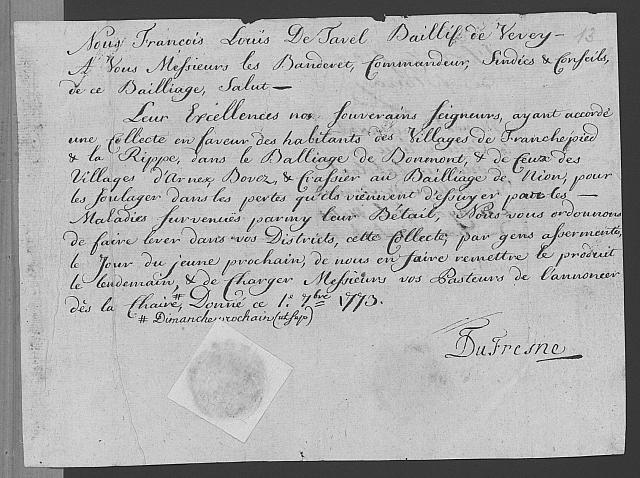 13
Nous François Loüis De Tavel Baillif de Vevey —
A Vous Messieurs les Banderet, Commandeur, Sindics & Conseils,
de ce Bailliage, Salut —
Leur Excellences nos souverains seigneurs, ayant accordé
une Collecte en faveur des habitants des Villages de Franchepied
& la Rippe, dans le Balliage de Bonmont, & de Ceux des
Villages d'Arnex, Bovez, & Crassier au Bailliage de Nion, pour
les soulager dans les pertes qu'ils viennent d'essuyer par les —
Maladies survenuës parmy leur Bétail, Nous vous ordonnons
de faire lever dans vos Districts, cette Collecte, par gens assermentés,
le Jour du jeune prochain, de nous en faire remettre le produit
le lendemain, & de Charger Messieurs vos Pasteurs de l'annoncer
dès la Chaire, # Donné ce 1.e 7bre 1773.
# Dimanche prochain (ut sup)
DuFresne